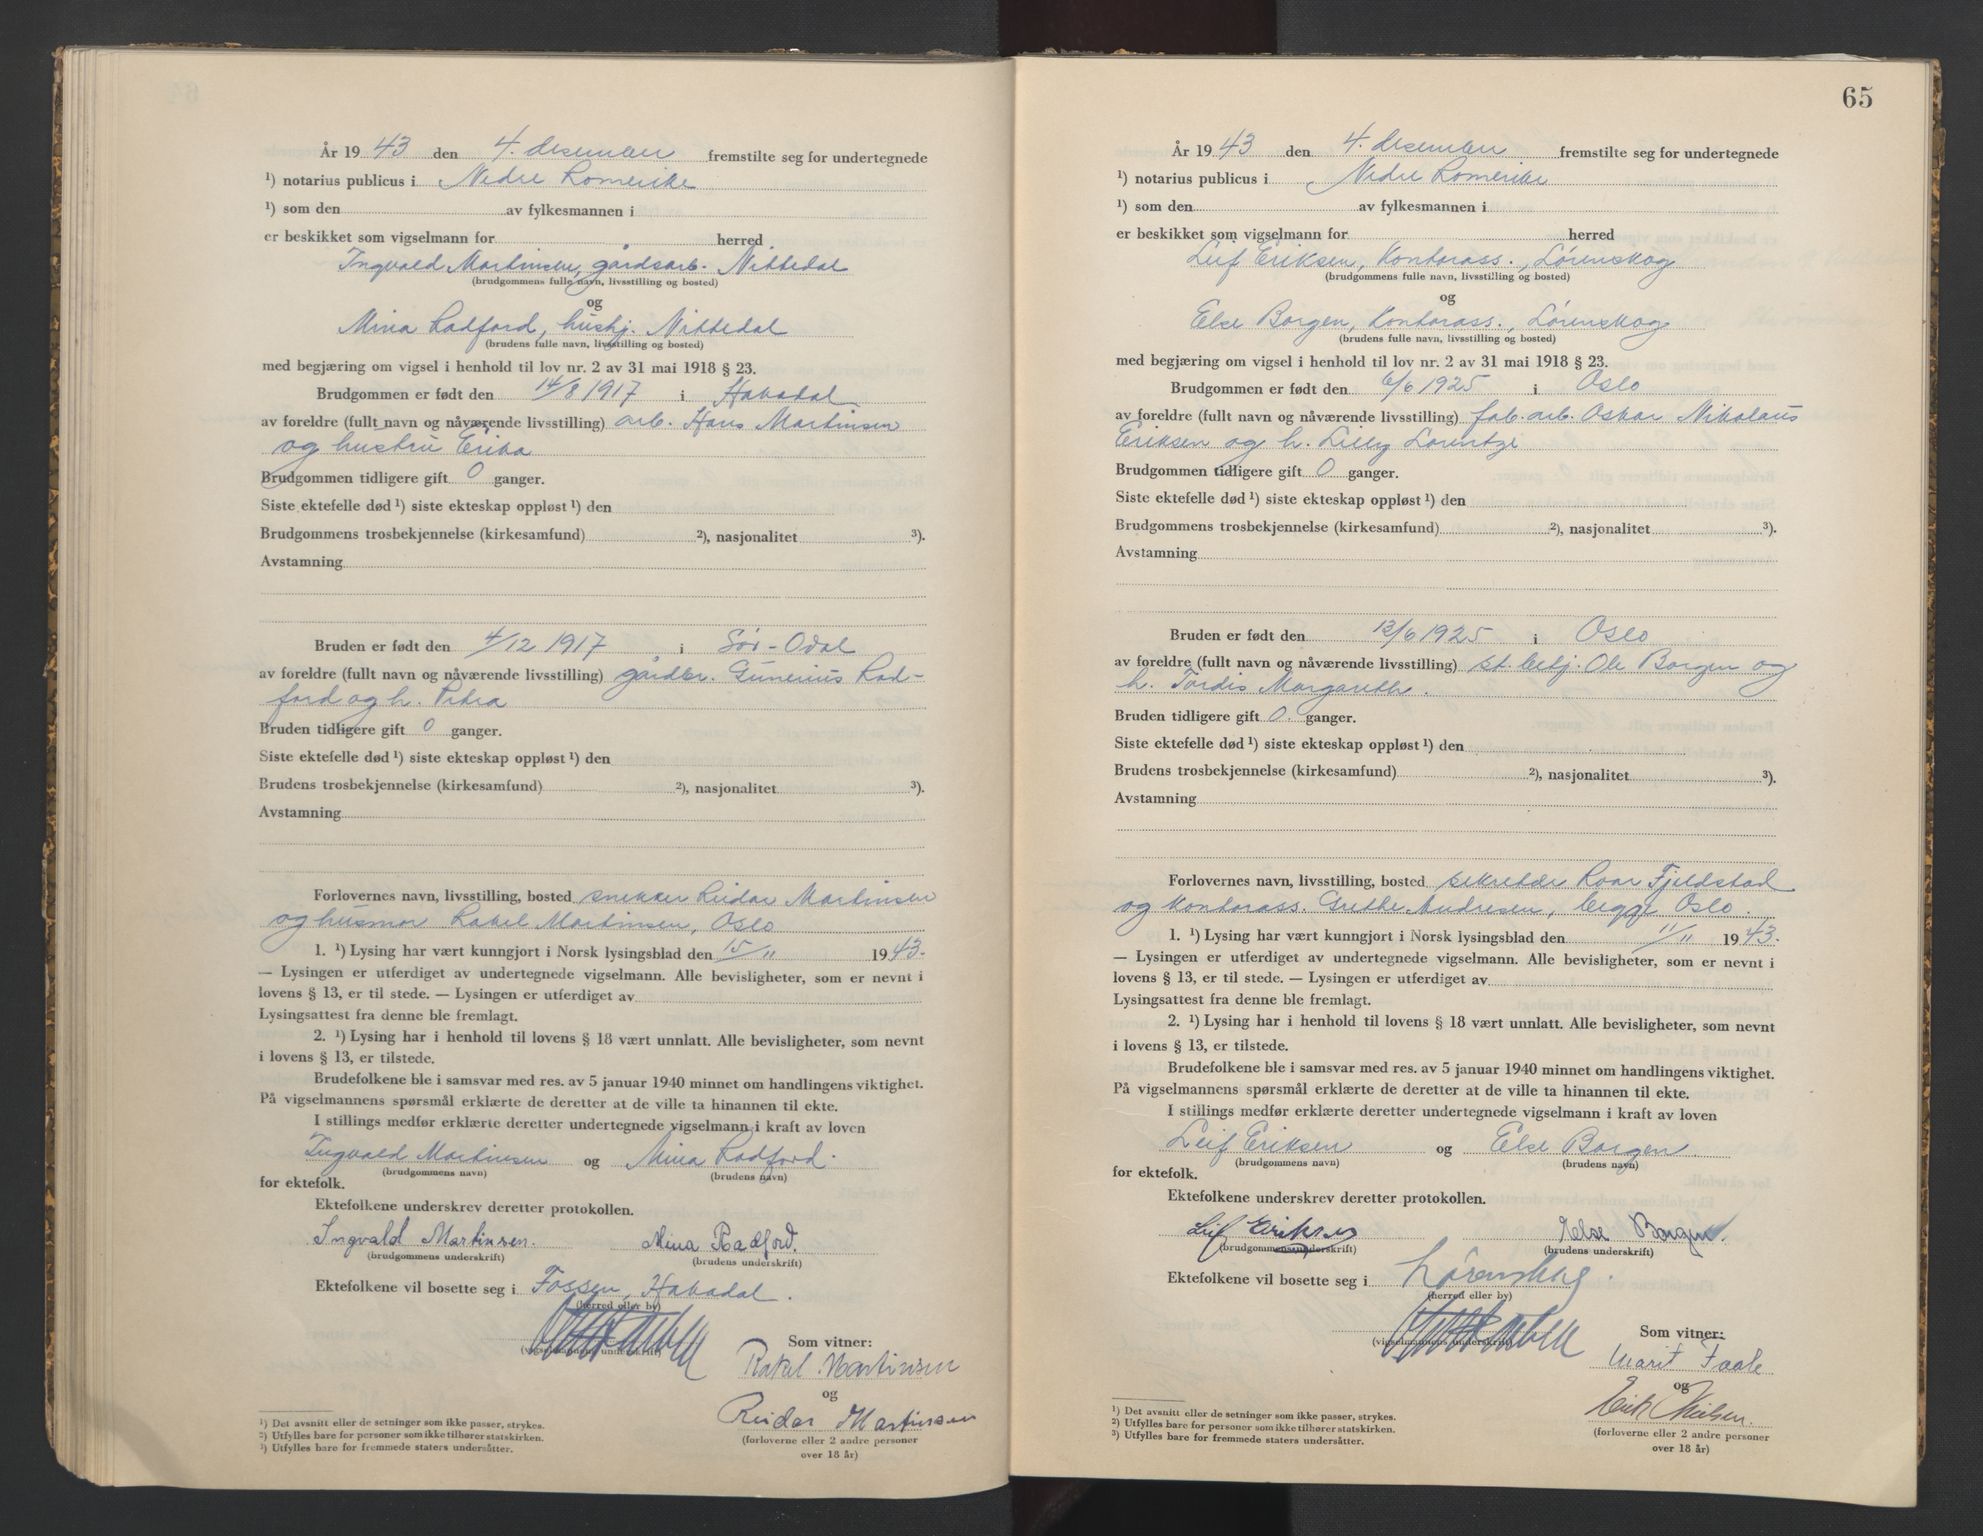 År 1943 den 4. desember fremstilte seg for undertegnede
¹) notarius publicus i Nedre Romerike
¹) som den av fylkesmannen i
er beskikket som vigselmann for herred
Ingvald Martinsen, gårdsarb. Nittedal
(brudgommens fulle navn, livsstilling og bosted)
og
Mina Radford, hushj. Nittedal
(brudens fulle navn, livsstilling og bosted)
med begjæring om vigsel i henhold til lov nr. 2 av 31 mai 1918 § 23.
Brudgommen er født den 14/8 1917 i Hakadal
av foreldre (fullt navn og nåværende livsstilling) arb. Hans Martinsen
og hustru Erika
Brudgommen tidligere gift 0 ganger.
Siste ektefelle død ¹) siste ekteskap oppløst ¹) den
Brudgommens trosbekjennelse (kirkesamfund) ²), nasjonalitet ³).
Avstamning
Bruden er født den 4/12 1917 i Sør-Odal
av foreldre (fullt navn og nåværende livsstilling) gårdbr. Gunerius Rad-
ford og h. Petra
Bruden tidligere gift 0 ganger.
Siste ektefelle død ¹) siste ekteskap oppløst ¹) den
Brudens trosbekjennelse (kirkesamfund) ²), nasjonalitet ³).
Avstamning
Forlovernes navn, livsstilling, bosted snekker Reidar Martinsen
og husmor Rakel Martinsen, Oslo
1. ¹) Lysing har vært kunngjort i Norsk lysingsblad den 15/11 1943.
— Lysingen er utferdiget av undertegnede vigselmann. Alle bevisligheter, som er nevnt i
lovens § 13, er til stede. — Lysingen er utferdiget av
Lysingsattest fra denne ble fremlagt.
2. ¹) Lysing har i henhold til lovens § 18 vært unnlatt. Alle bevisligheter, som nevnt
i lovens § 13, er tilstede.
Brudefolkene ble i samsvar med res. av 5 januar 1940 minnet om handlingens viktighet.
På vigselmannens spørsmål erklærte de deretter at de ville ta hinannen til ekte.
I stillings medfør erklærte deretter undertegnede vigselmann i kraft av loven
Ingvald Martinsen og Mina Radford.
(brudgommens navn) (brudens navn)
for ektefolk.
Ektefolkene underskrev deretter protokollen.
Ingvald Martinsen. Mina Radford.
(brudgommens underskrift) (brudens underskrift)
Ektefolkene vil bosette seg i Fossen, Hakadal.
(herred eller by)
(vigselmannens underskrift)
Som vitner:
Rakel Martinsen
og
Reidar Martinsen
(forloverne eller 2 andre personer
over 18 år)
¹) Det avsnitt eller de setninger som ikke passer, strykes.
²) Utfylles bare for personer som ikke tilhører statskirken.
³) Utfylles bare for fremmede staters undersåtter.
65
År 1943 den 4. desember fremstilte seg for undertegnede
¹) notarius publicus i Nedre Romerike
¹) som den av fylkesmannen i
er beskikket som vigselmann for herred
Leif Eriksen, kontorass., Lørenskog
(brudgommens fulle navn, livsstilling og bosted)
og
Else Borgen, kontorass., Lørenskog
(brudens fulle navn, livsstilling og bosted)
med begjæring om vigsel i henhold til lov nr. 2 av 31 mai 1918 § 23.
Brudgommen er født den 6/6 1925 i Oslo
av foreldre (fullt navn og nåværende livsstilling) fab. arb. Oskar Nikolaus
Eriksen og h. Lilly Lorentze
Brudgommen tidligere gift 0 ganger.
Siste ektefelle død ¹) siste ekteskap oppløst ¹) den
Brudgommens trosbekjennelse (kirkesamfund) ²), nasjonalitet ³).
Avstamning
Bruden er født den /6 1925 i Oslo
av foreldre (fullt navn og nåværende livsstilling) st. betj. Ole Borgen og
h. Tordis Margarethe.
Bruden tidligere gift 0. ganger.
Siste ektefelle død ¹) siste ekteskap oppløst ¹) den
Brudens trosbekjennelse (kirkesamfund) ²), nasjonalitet ³).
Avstamning
Forlovernes navn, livsstilling, bosted sekretær Roar Fjeldstad
og kontorass. Grethe Andresen, begge Oslo.
1. ¹) Lysing har vært kunngjort i Norsk lysingsblad den 11/11 1943.
— Lysingen er utferdiget av undertegnede vigselmann. Alle bevisligheter, som er nevnt i
lovens § 13, er til stede. — Lysingen er utferdiget av
Lysingsattest fra denne ble fremlagt.
2. ¹) Lysing har i henhold til lovens § 18 vært unnlatt. Alle bevisligheter, som nevnt
i lovens § 13, er tilstede.
Brudefolkene ble i samsvar med res. av 5 januar 1940 minnet om handlingens viktighet.
På vigselmannens spørsmål erklærte de deretter at de ville ta hinannen til ekte.
I stillings medfør erklærte deretter undertegnede vigselmann i kraft av loven
Leif Eriksen og Else Borgen
(brudgommens navn) (brudens navn)
for ektefolk.
Ektefolkene underskrev deretter protokollen.
Leif Eriksen Else Borgen.
(brudgommens underskrift) (brudens underskrift)
Ektefolkene vil bosette seg i Lørenskog.
(herred eller by)
(vigselmannens underskrift)
Som vitner:
Marit
og
Erik Nielsen.
(forloverne eller 2 andre personer
over 18 år)
¹) Det avsnitt eller de setninger som ikke passer, strykes.
²) Utfylles bare for personer som ikke tilhører statskirken.
³) Utfylles bare for fremmede staters undersåtter.